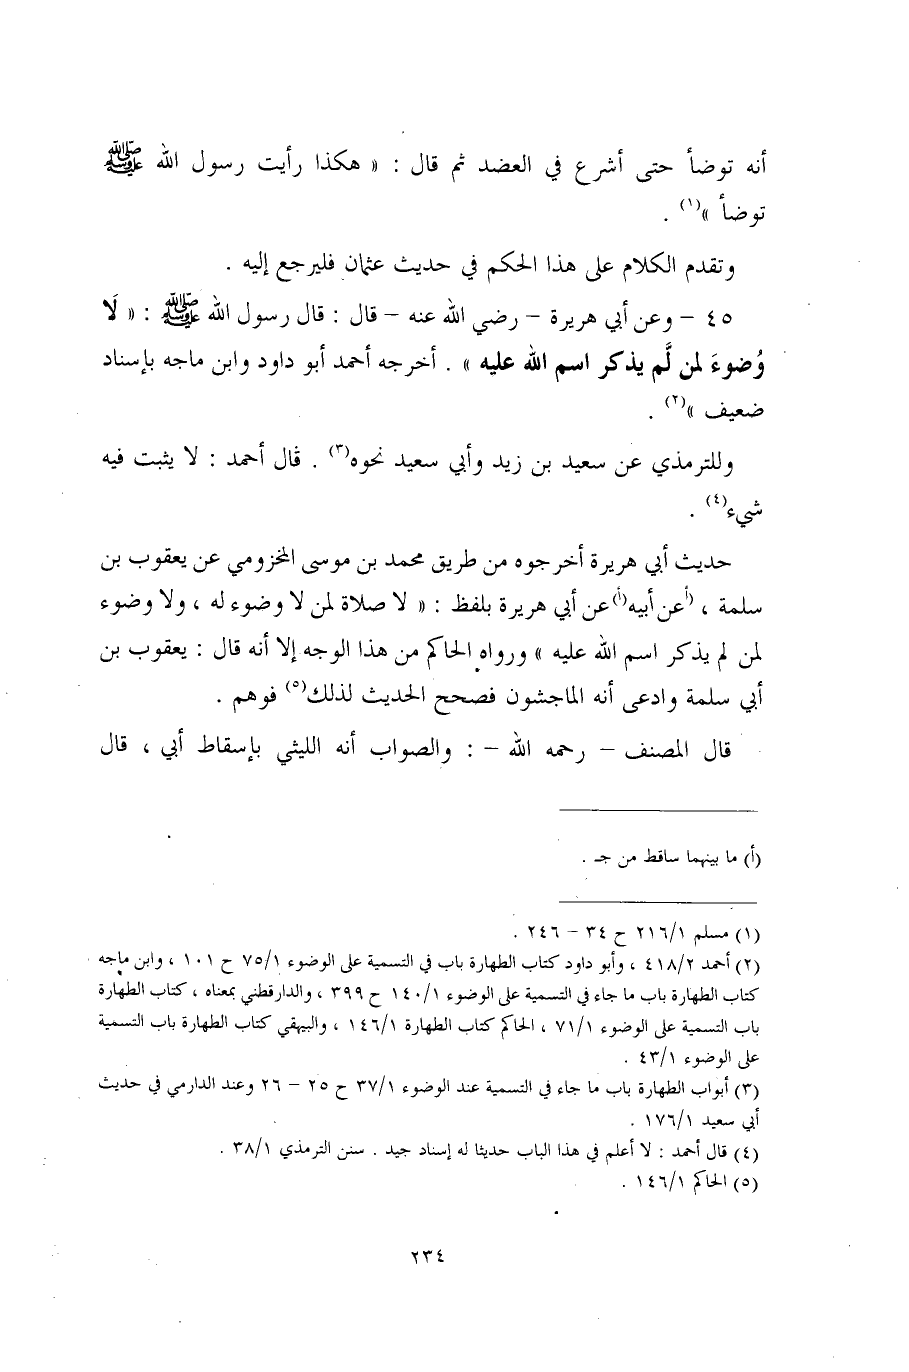 أنه توضأ حتى أشرع في العضد ثم قال : « هكذا رأيت رسول الله ﷺ
توضأ »(١) .
وتقدم الكلام على هذا الحكم في حديث عثمان فليرجع إليه .
٤٥ – وعن أبي هريرة – رضي الله عنه – قال : قال رسول الله ﷺ : « لَا
وُضوءَ لمن لَّم يذكر اسم الله عليه » . أخرجه أحمد أبو داود وابن ماجه بإسناد
ضعيف »(٢) .
وللترمذي عن سعيد بن زيد وأبي سعيد نحوه(٣) . قال أحمد : لا يثبت فيه
شيء(٤) .
حديث أبي هريرة أخرجوه من طريق محمد بن موسى المخزومي عن يعقوب بن
سلمة ، (أ)عن أبيه(أ) عن أبي هريرة بلفظ : « لا صلاة لمن لا وضوء له ، ولا وضوء
لمن لم يذكر اسم الله عليه » ورواه الحاكم من هذا الوجه إلا أنه قال : يعقوب بن
أبي سلمة وادعى أنه الماجشون فصحح الحديث لذلك(٥) فوهم .
قال المصنف – رحمه الله – : والصواب أنه الليثي بإسقاط أبي ، قال
(أ) ما بينهما ساقط من جـ .
(١) مسلم ٢١٦/١ ح ٣٤ – ٢٤٦ .
(٢) أحمد ٤١٨/٢ ، وأبو داود كتاب الطهارة باب في التسمية على الوضوء ٧٥/١ ح ١٠١ ، وابن ماجه
كتاب الطهارة باب ما جاء في التسمية على الوضوء ١٤٠/١ ح ٣٩٩ ، والدارقطني بمعناه ، كتاب الطهارة
باب التسمية على الوضوء ٧١/١ ، الحاكم كتاب الطهارة ١٤٦/١ ، والبيهقي كتاب الطهارة باب التسمية
على الوضوء ٤٣/١ .
(٣) أبواب الطهارة باب ما جاء في التسمية عند الوضوء ٣٧/١ ح ٢٥ – ٢٦ وعند الدارمي في حديث
أبي سعيد ١٧٦/١ .
(٤) قال أحمد : لا أعلم في هذا الباب حديثا له إسناد جيد . سنن الترمذي ٣٨/١ .
(٥) الحاكم ١٤٦/١ .
٢٣٤